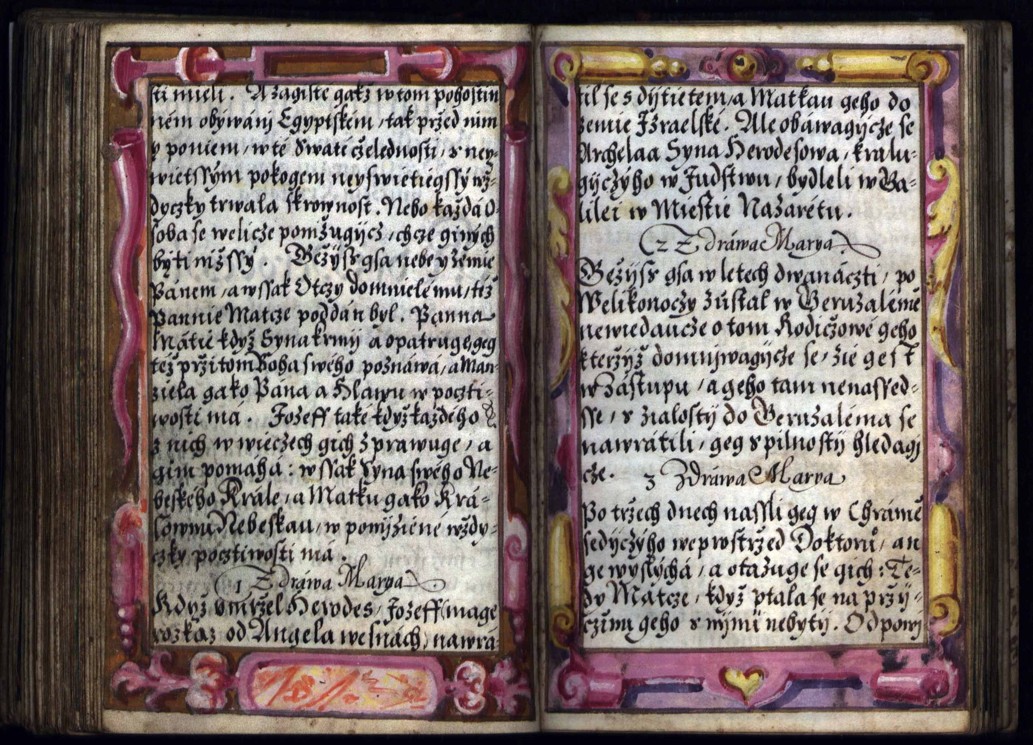 ti mieli. A zagiste gakž w tom pohostin
ném obywáni Egyptském, tak přzed nim
y poniem, w té Swaté čželednosti, s ney-
wietssým pokogem neyswietiegssý wž-
dyczky trwala skrownost. Nebo každá o-
soba se welicže pomžugýcz, chcze giných
byti nižssý. Gežýss gsa nebe y zemie
Pánem, a wssak Otczy domnielému, též
pannie Matcze poddán byl. Panna
Matie když Syna krmij a opatruge, geg
též přzitom Boha swého poznáwá, a Man-
žiela gako Pána a Hlawu w pocti-
wosti má. Jozeff také když každého
z nich w wieczech gich zprawuge, a
gim pomáhá: wssak Syna swého Ne-
beského Krále, a Matku gako Krá-
lownu Nebeskau, w ponijžiené wždy-
czky pocztiwosti má.
1 Zdráwa Marya
Když vmržel Herodes, Jozeff mage
rozkaz od Angela we snách, nawrá
til se s dýtietem, a Matkau geho do
zemie Jzraelské. Ale obáwagýcže se
Archelaa Syna Herodesowa, kralu-
gýcžýho w Judstwu, bydleli w Ga-
lilei w Miestie Nazarétu.
2 Zdráwa Marya
Gežýss gsa w letech dwanáczti, po
Welikonoczy zústal w Geruzalémě
newiedaucže o tom Rodičzowé geho
kteržýž domnijwagýcže se, žie gest
w Zástupu, a geho tam nenassed-
sse, s žialostý do Geruzaléma se
nawrátili, geg s pilnostý hledagj
cže. 3 Zdráwa Marya
Po tržech dnech nassli geg w Chrámě
sedýcžýho w eprostržed Doktorů, an
ge wyslýchá, a otazuge se gich: Te-
dy Matcze, když ptala se na przý-
cžinu geho s nijmi nebytý. Odpowj